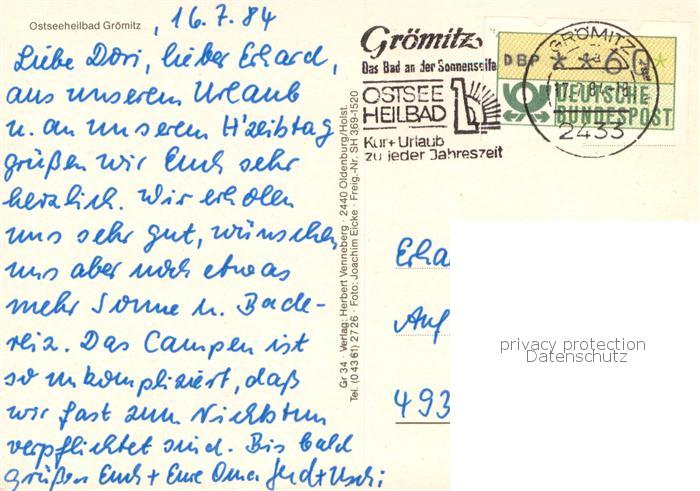 Ostseeheilbad Grömitz , 16.7.84
Liebe Dori, lieber Erhard,
aus unserem Urlaub
u. an unserem H'zeitstag
grüßen wir Euch sehr
herzlich. Wir erholen
uns sehr gut, wünschen
uns aber noch etwas
mehr Sonne u. Bade-
reiz. Das Campen ist
so unkompliziert, daß
wir fast zum Nichtstun
verpflichtet sind. Bis bald
grüßen Euch + Eure Oma Gerd + Uschi
Gr 34 · Verlag: Herbert Venneberg · 2440 Oldenburg/Holst.
Tel. (0 43 61) 27 26 · Foto: Joachim Eicke · Freig.-Nr. SH 369-1520
Grömitz
Das Bad an der Sonnenseite
OSTSEE
HEILBAD
Kur + Urlaub
zu jeder Jahreszeit
GRÖMITZ
2433
DBP
DEUTSCHE
BUNDESPOST
Erha
Auf
493
privacy protection
Datenschutz